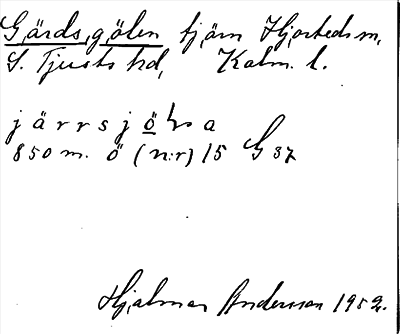 Gärdsgölen tjärn Hjorteds sn,
S. Tjusts hd, Kalm. l.
järrsjö̲lsa
850 m. ö (n:r) 15 G 37
Hjalmar Andersson 1952.